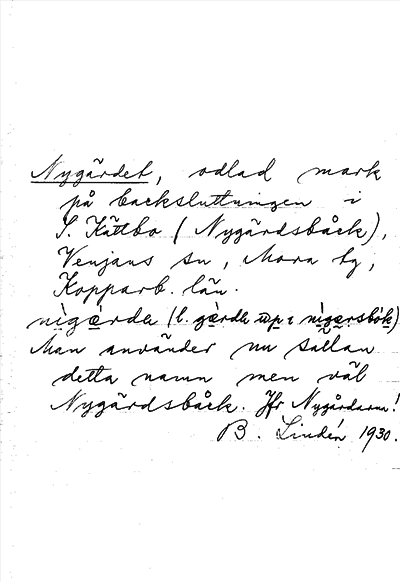 Nygärdet, odlad mark
på backsluttningen i
S. Kättbo (Nygärdsbåck),
Venjans sn, Mora tg,
Kopparb. län.
nìgærda (l. gærda
Man använder nu sällan
detta namn men väl
Nygärdsbåck. Jfr Nygårdarna!
B. Lindén 1930.